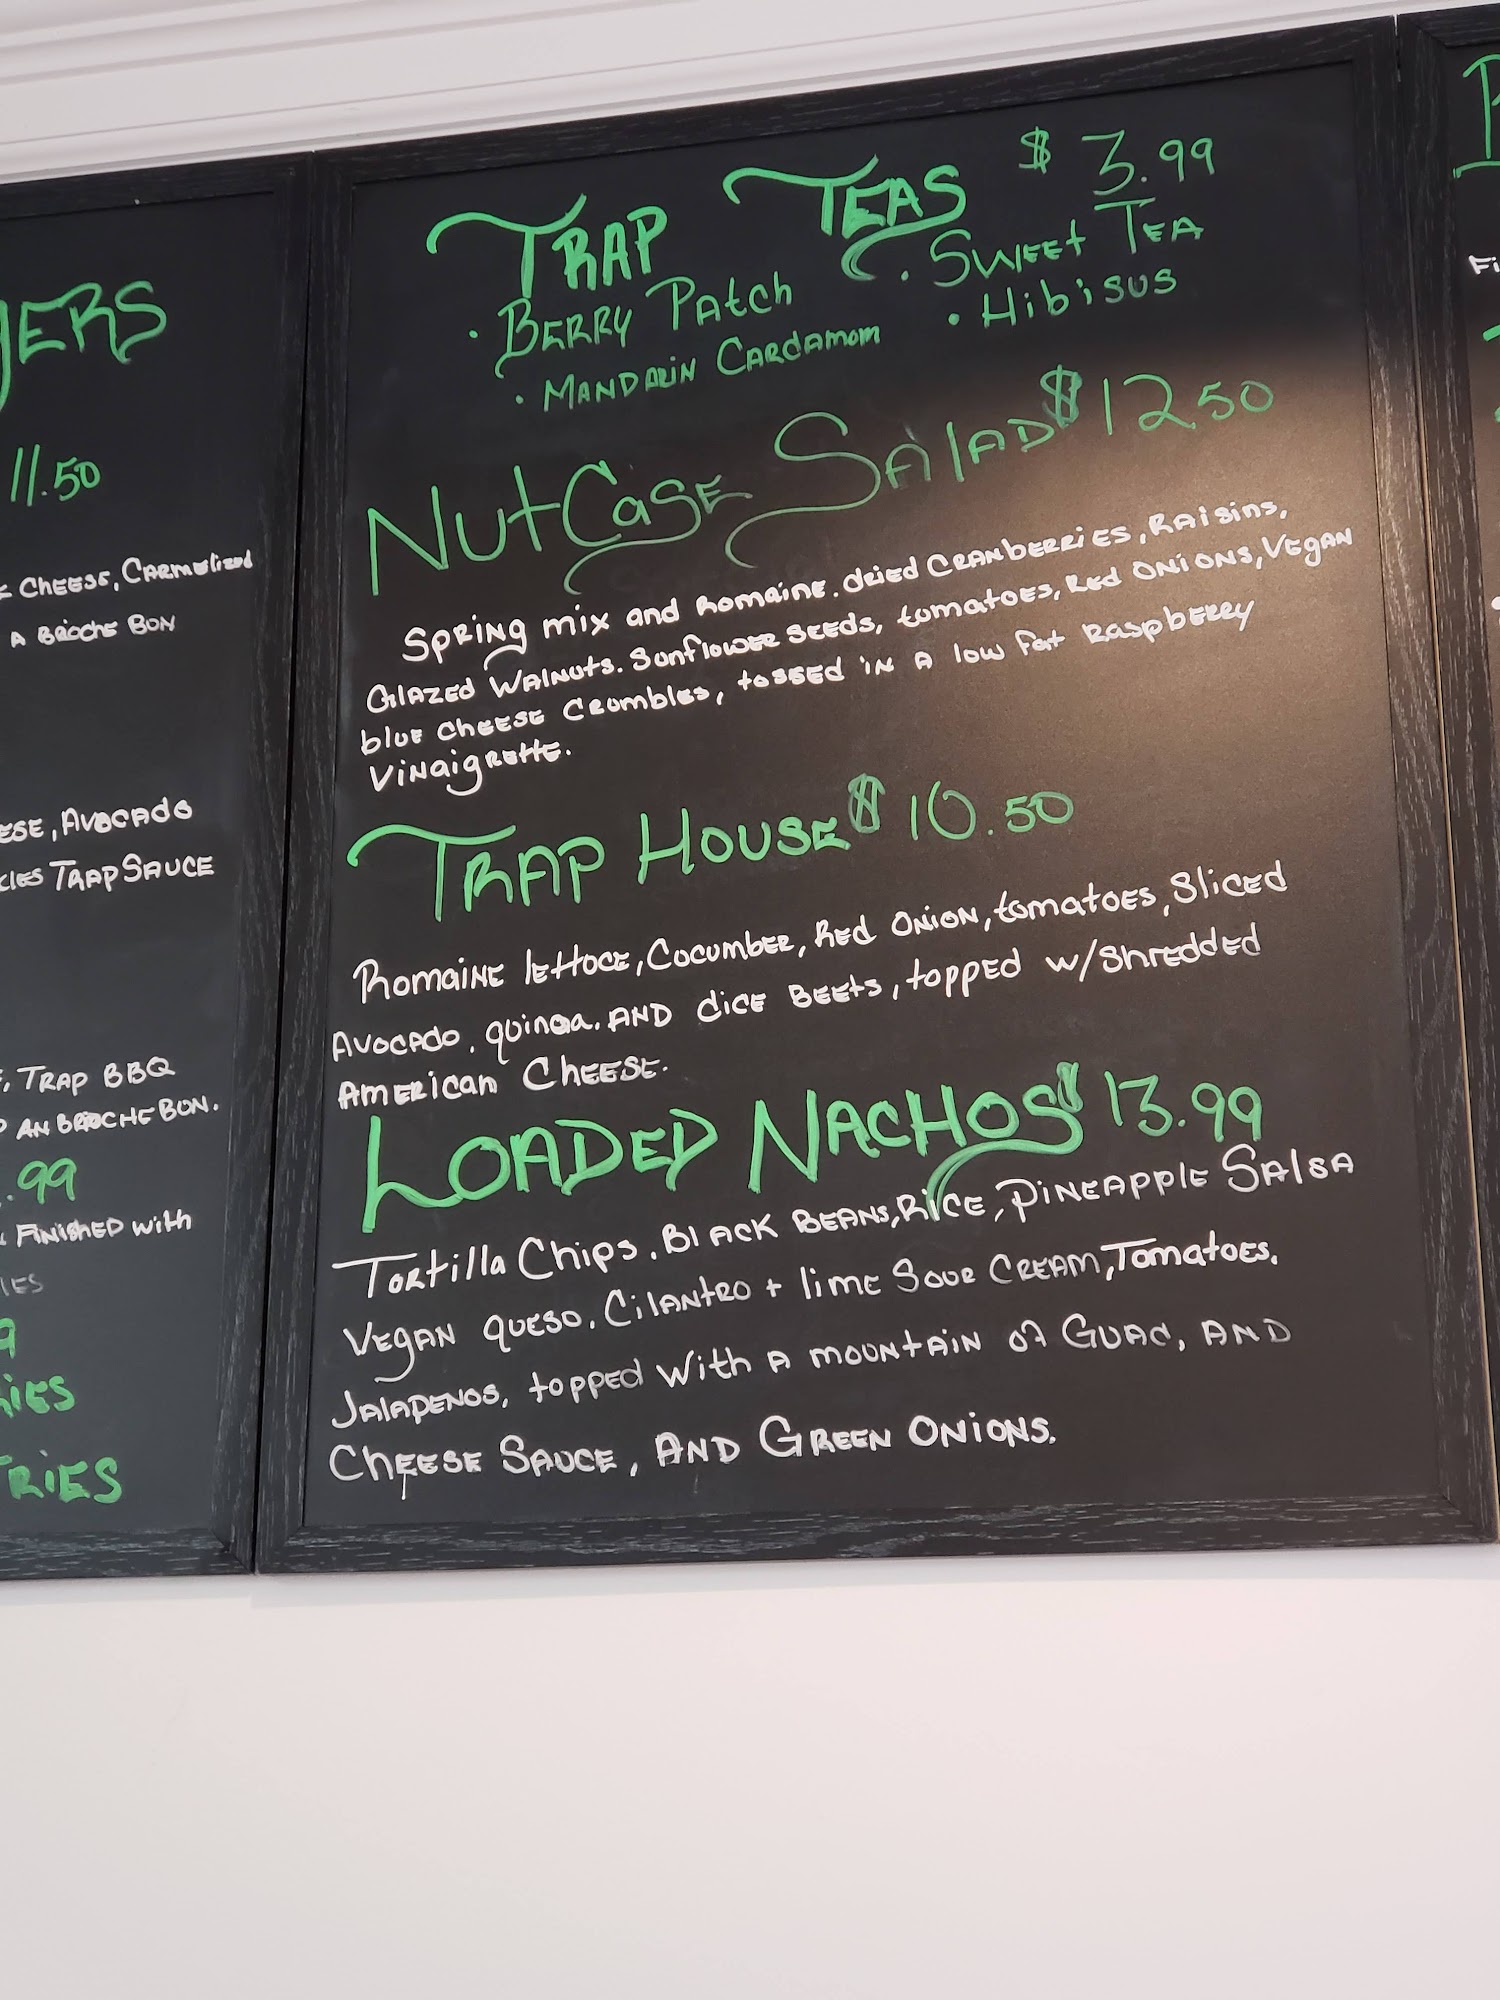 GERS
11.50
CHEESE, CARMELIZED
A BRIOCHE BON
ESE, AVOCADO
CLES TRAP SAUCE
, TRAP BBQ
AN BRIOCHE BON.
.99
FINISHED with
IES
9
RIES
FRIES
TRAP TEAS $ 3.99
· BERRY PATCH · SWEET TEA
· MANDARIN CARDAMOM · Hibisus
NUTCASE SALAD $ 12.50
SPRING mix and Romaine. dried CRANberries, RAisins,
GLAZED WALNUTS. Sunflower SEEDS, tomatoes, Red ONIONS, VEGAN
blue cheese Crombles, tossed in A low fat Raspberry
Vinaigrette.
TRAP HOUSE $ 10.50
Romaine lettoce, Cocumber, Red ONION, tomatoes, Sliced
Avocado. quinoa. AND dice BEETS, topped w/Shredded
American Cheese.
LOADED NACHOS $ 13.99
Tortilla Chips. Black BEANS, RICE, PINEAPPLE SALSA
VEGAN queso. Cilantro + lime Sour CREAM, Tomatoes.
Jalapenos, topped with A mountain of GUAC, AND
Cheese Sauce, AND GREEN ONIONS.
Fi